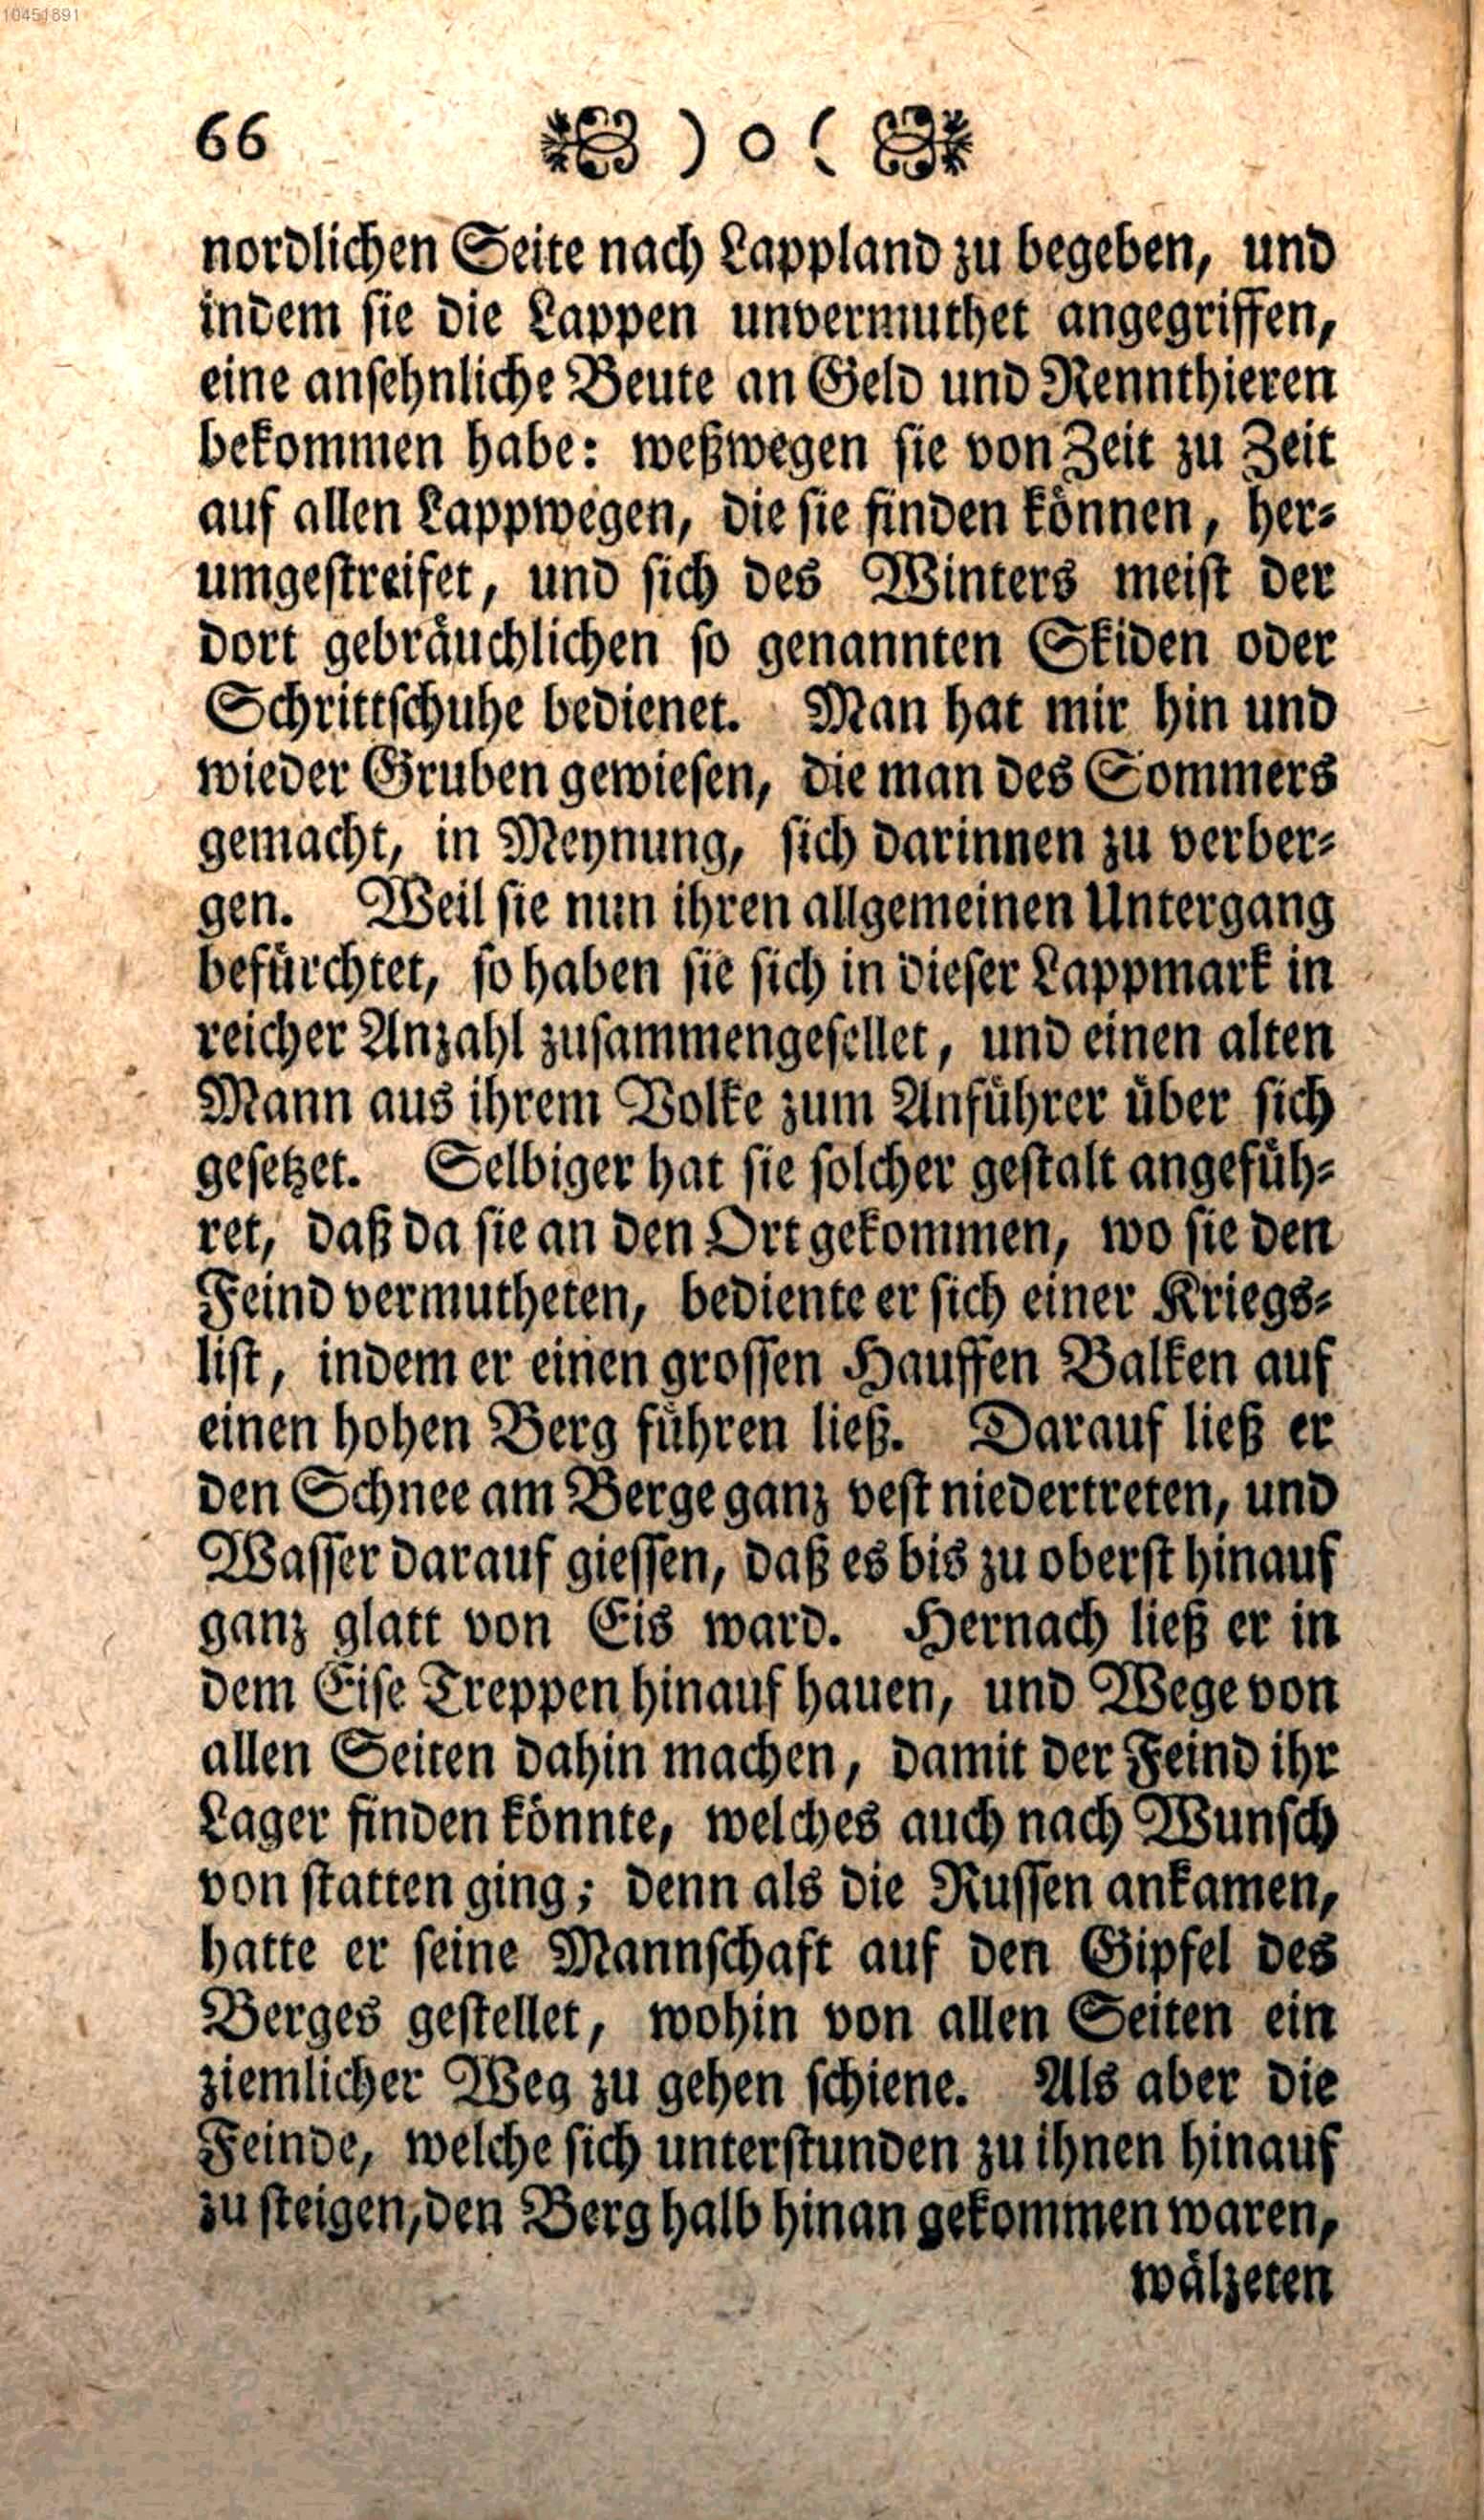 10451891
66 ) o (
nordlichen Seite nach Lappland zu begeben, und
indem sie die Lappen unvermuthet angegriffen,
eine ansehnliche Beute an Geld und Rennthieren
bekommen habe: weßwegen sie von Zeit zu Zeit
auf allen Lappwegen, die sie finden können, her-
umgestreifet, und sich des Winters meist der
dort gebräuchlichen so genannten Skiden oder
Schrittschuhe bedienet. Man hat mir hin und
wieder Gruben gewiesen, die man des Sommers
gemacht, in Meynung, sich darinnen zu verber-
gen. Weil sie nun ihren allgemeinen Untergang
befürchtet, so haben sie sich in dieser Lappmark in
reicher Anzahl zusammengesellet, und einen alten
Mann aus ihrem Volke zum Anführer über sich
gesetzet. Selbiger hat sie solcher gestalt angefüh-
ret, daß da sie an den Ort gekommen, wo sie den
Feind vermutheten, bediente er sich einer Kriegs-
list, indem er einen grossen Hauffen Balken auf
einen hohen Berg führen ließ. Darauf ließ er
den Schnee am Berge ganz vest niedertreten, und
Wasser darauf giessen, daß es bis zu oberst hinauf
ganz glatt von Eis ward. Hernach ließ er in
dem Eise Treppen hinauf hauen, und Wege von
allen Seiten dahin machen, damit der Feind ihr
Lager finden könnte, welches auch nach Wunsch
von statten ging; denn als die Russen ankamen,
hatte er seine Mannschaft auf den Gipfel des
Berges gestellet, wohin von allen Seiten ein
ziemlicher Weg zu gehen schiene. Als aber die
Feinde, welche sich unterstunden zu ihnen hinauf
zu steigen, den Berg halb hinan gekommen waren,
wälzeten